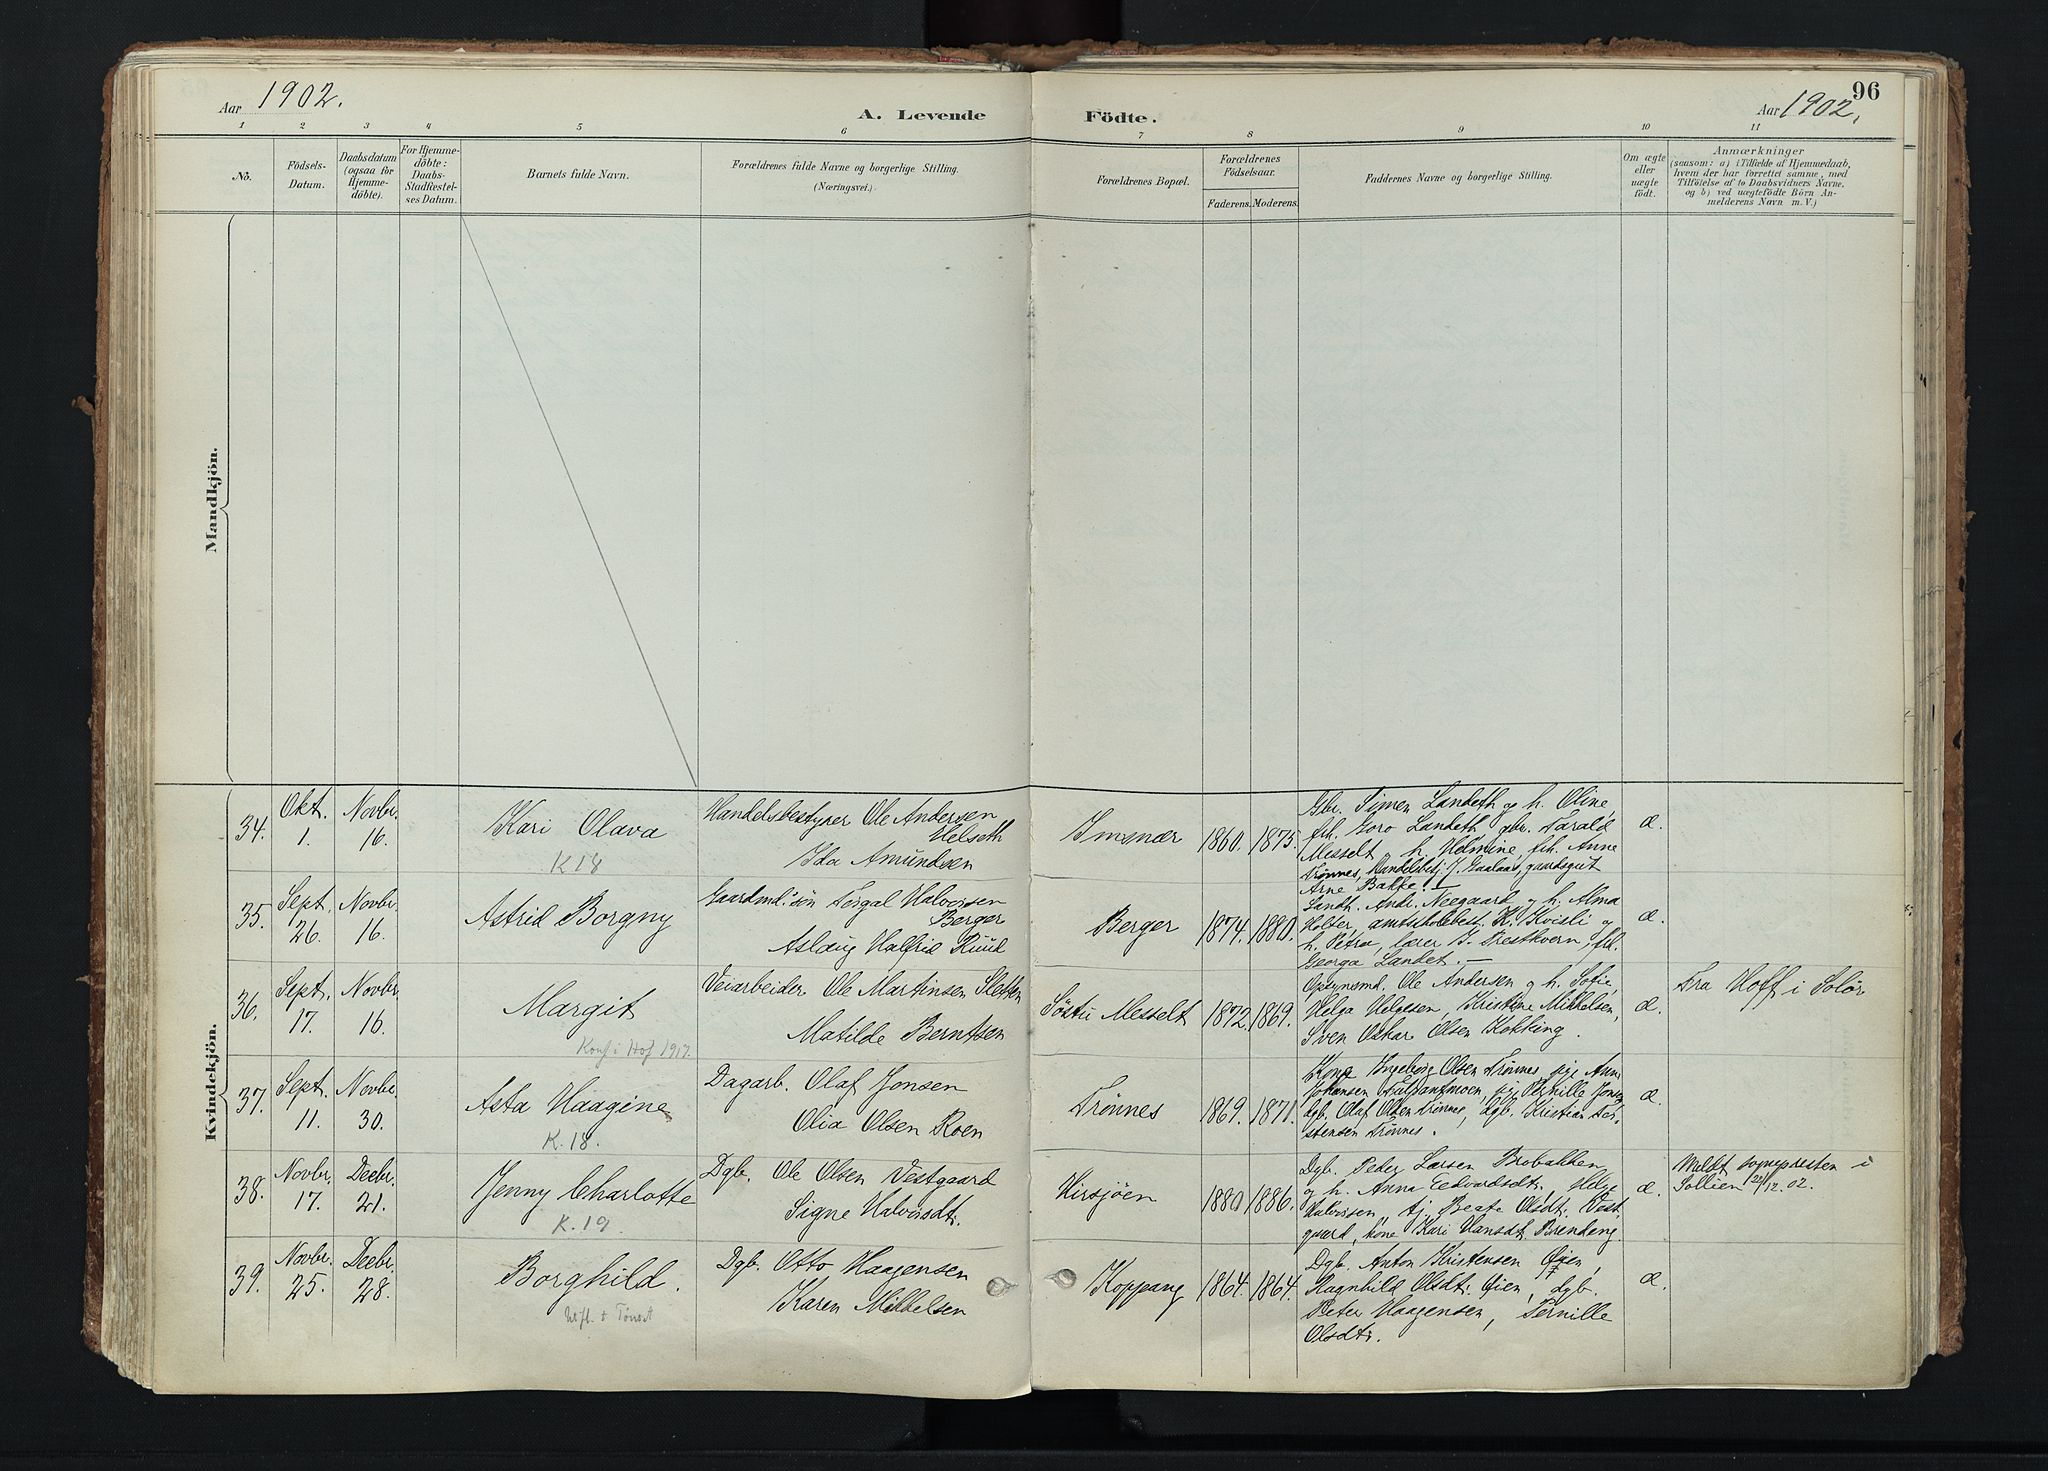 Aar 1902.
A. Levende Födte.
Aar 1902.
96
1 2 3 4 5 6 7 8 9 10 11
No.
Födsels-
Datum.
Daabsdatum
(ogsaa for
Hjemme-
döbte).
For Hjemme-
döbte:
Daabs-
Stadfæstel-
ses Datum.
Barnets fulde Navn.
Forældrenes fulde Navne og borgerlige Stilling.
(Næringsvei.)
Forældrenes Bopæl.
Forældrenes
Födselsaar.
Faderens. Moderens.
Faddernes Navne og borgerlige Stilling.
Om ægte
eller
uægte
födt.
Anmærkninger
(saasom: a) i Tilfælde af Hjemmedaab,
hvem der har forrettet samme, med
Tilföielse af to Daabsvidners Navne,
og b) ved uægtefödte Börn An-
melderens Navn m. V.)
Mandkjön.
Kvindekjön.
34.
Okt.
1.
Novbr.
16.
Kari Olava
K 18
Handelsbestyrer Ole Andersen
Helseth
Ida Amundsen
Imsnær
1860.
1875.
Gbr. Simen Landeth og h. Oline,
frk. Goro Landeth, gbr. Tarald
Messelt, h. Helmine, frk. Anne
Trønnes, Handelsbetj. J. Gaalaas, gaardsgut
Arne Bakke. —
æ.
35.
Sept.
26.
Novbr.
16.
Astrid Borgny
Gaardmd.søn Torgal Halvorsen
Berger
Aslaug Halfrid Ruud
Berger
1874.
1880.
Landh. Andr. Neegaard og h. Alma
Holter, amtsskolebest. H. Kvisli og
h. Petra, lærer J. Prestkvern, frk.
Georga Landet. —
æ.
36.
Sept.
17.
Novbr.
16.
Margit
Konf i Hof 1917.
Veiarbeider Ole Martinsen Sletten
Matilde Berntsen
Söstu Messelt
1872.
1869.
Opsynsmd. Ole Andersen og h. Sofie,
Helga Helgesen, Kristine Mikkelsen,
Sven Oskar Olsen Kokking.
æ.
Fra Hoff i Solør
37.
Sept.
11.
Novbr.
30.
Asta Haagine
K. 18.
Dagarb. Olaf Jonsen
Olia Olsen Roen
Trönnes
1869.
1871.
Kone Ingeborg Olsen Trønnes, pige Anne
Johansen pige Pernille Jonsen
dgb. Olaf Olsen Trønnes, dgb. Kristian Tor-
stensen Trønnes.
æ.
38.
Novbr.
17.
Decbr.
21.
Jenny Charlotte
K. 19.
Dgb. Ole Olsen Vestgaard
Signe Halvorsdtr.
Hirsjöen
1880
1886.
Dgb. Peder Larsen Brobakken
og h. Anna Edvardsdt., Helge
Halvorsen, tj. Beate Olsdt. Vest-
gaard, kone Kari Hansdt. Brendeng
æ.
Meldt sognepresten i
Sollien 22/12. 02.
39.
Novbr.
25.
Decbr.
28.
Borghild.
Dgb. Otto Haagensen
Karen Mikkelsen
Koppang
1864.
1864.
Dgb. Anton Kristensen Øien,
Ragnhild Olsdtr. Øien, dgb.
Peter Haagensen, Pernille
Olsdtr.
æ.